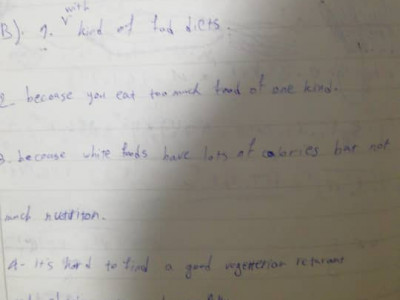 B). 1. with kind of fad diets.
2 because you eat too much food of one kind.
3. because white foods have lots of calories but not
much nutrition.
4- it's hard to find a good vegeterian returant